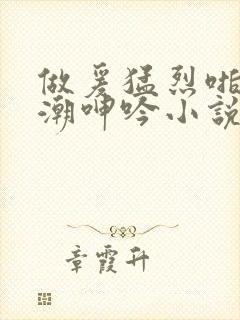 做爰猛烈啪
潮呻吟小説
章霞升